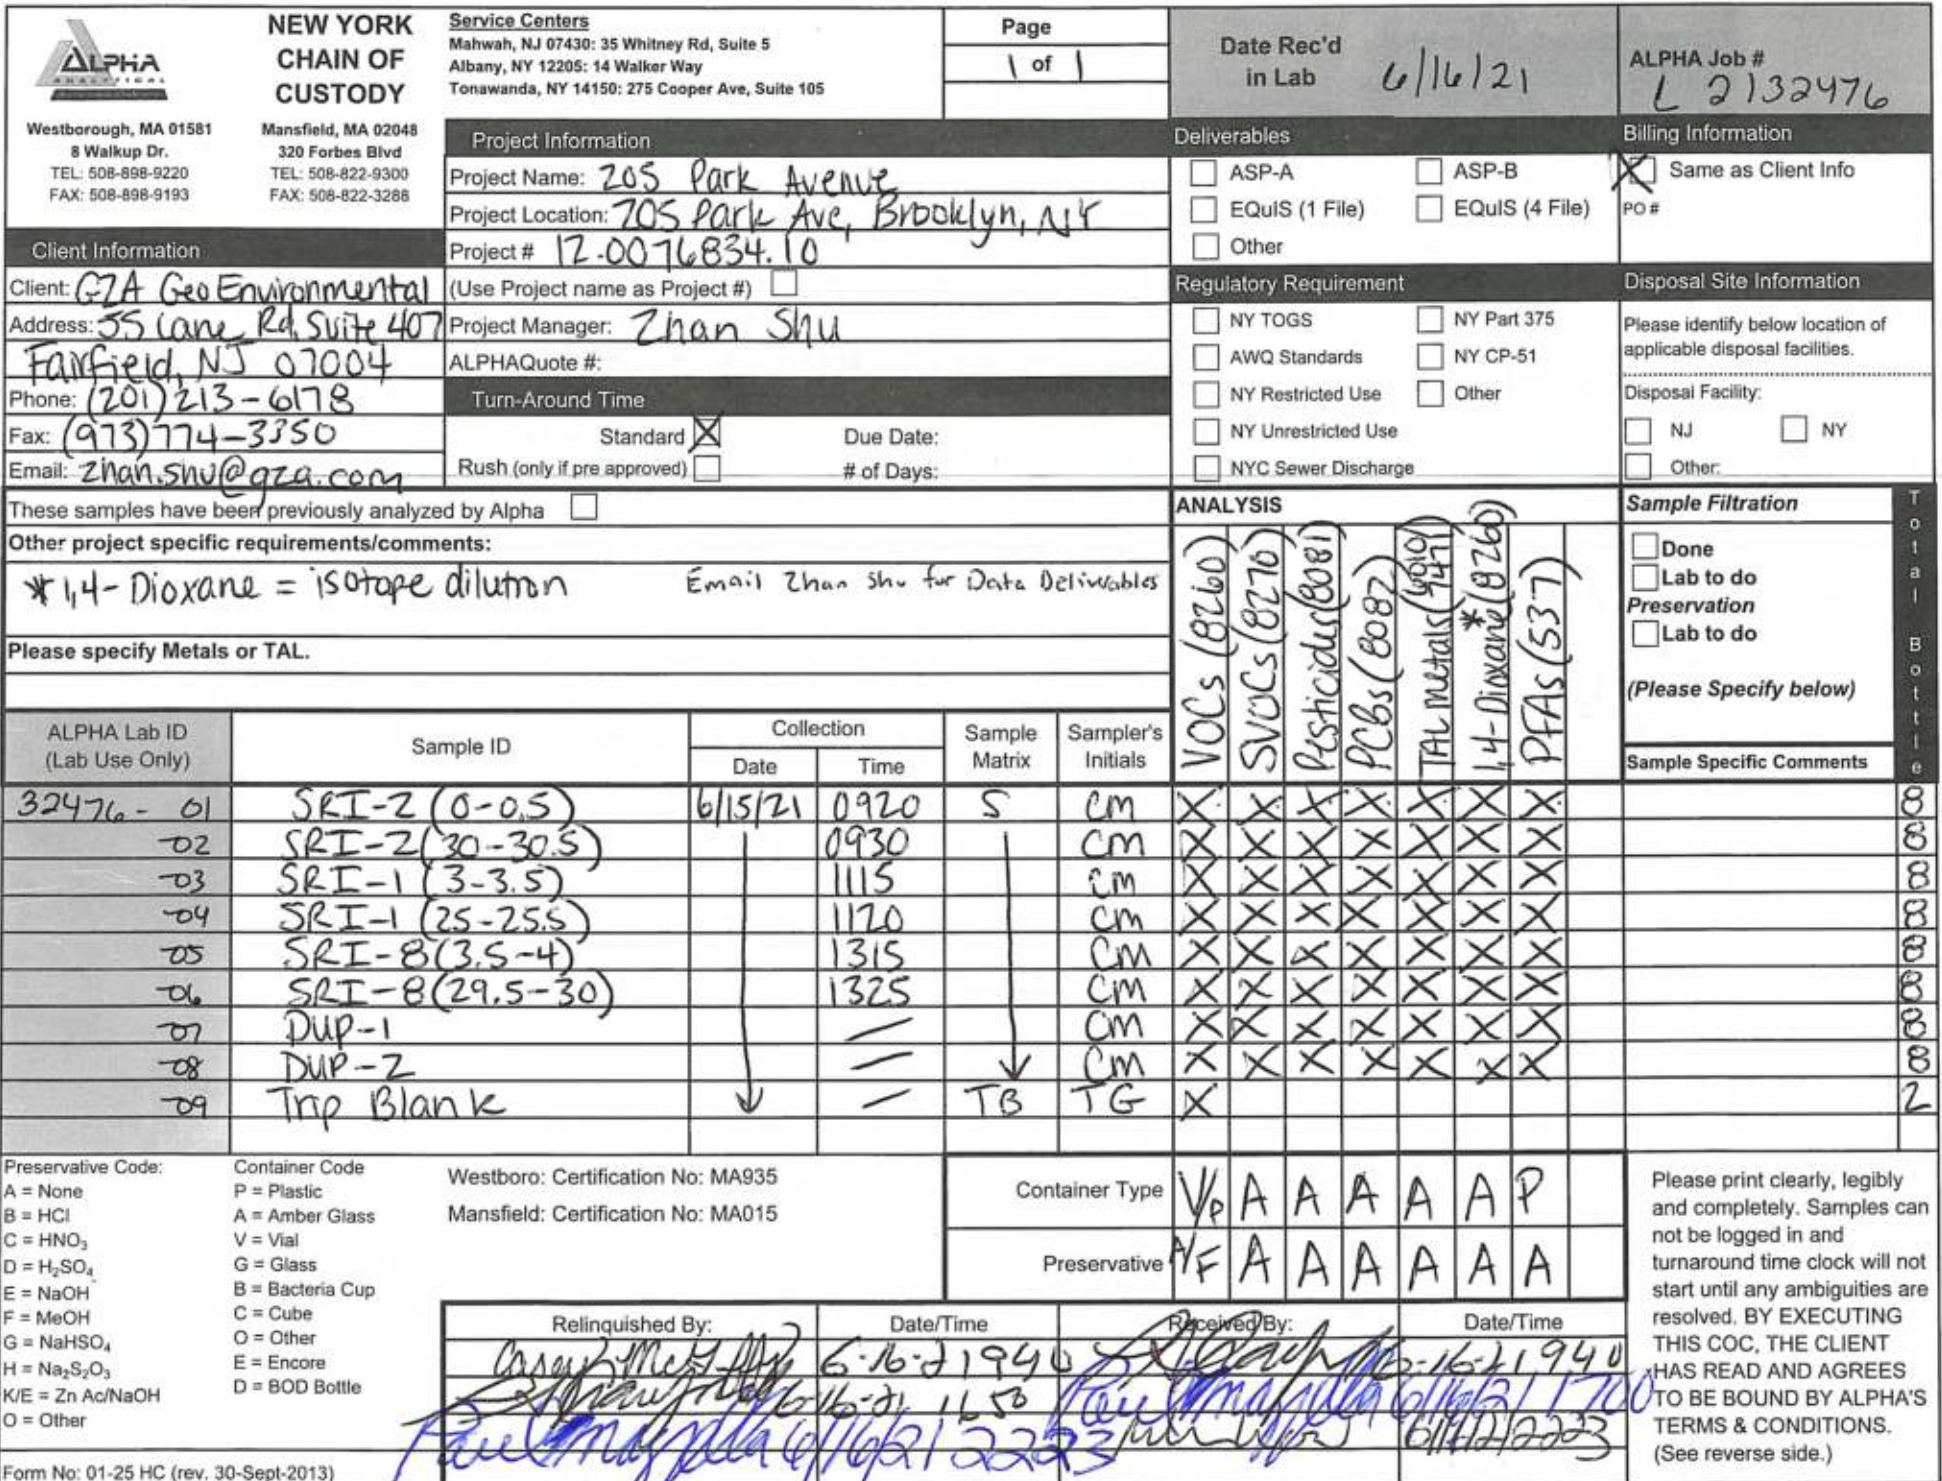 ALPHA
ANALYTICAL
Westborough, MA 01581
8 Walkup Dr.
TEL: 508-898-9220
FAX: 508-898-9193
NEW YORK
CHAIN OF
CUSTODY
Mansfield, MA 02048
320 Forbes Blvd
TEL: 508-822-9300
FAX: 508-822-3288
Service Centers
Mahwah, NJ 07430: 35 Whitney Rd, Suite 5
Albany, NY 12205: 14 Walker Way
Tonawanda, NY 14150: 275 Cooper Ave, Suite 105
Page
1 of 1
Date Rec'd
in Lab 6/16/21
ALPHA Job #
L 2132476
Project Information
Project Name: 205 Park Avenue
Project Location: 205 Park Ave, Brooklyn, NY
Project # 12.0076834.10
(Use Project name as Project #)
Project Manager: Zhan Shu
ALPHAQuote #:
Turn-Around Time
Standard X Due Date:
Rush (only if pre approved) # of Days:
Client Information
Client: GZA GeoEnvironmental
Address: 55 Lane Rd, Suite 407
Fairfield, NJ 07004
Phone: (201) 213-6178
Fax: (973) 774-3350
Email: zhan.shu@gza.com
Deliverables
ASP-A ASP-B
EQuIS (1 File) EQuIS (4 File)
Other
Regulatory Requirement
NY TOGS NY Part 375
AWQ Standards NY CP-51
NY Restricted Use Other
NY Unrestricted Use
NYC Sewer Discharge
Billing Information
X Same as Client Info
PO #
Disposal Site Information
Please identify below location of
applicable disposal facilities.
Disposal Facility:
NJ NY
Other:
These samples have been previously analyzed by Alpha
Other project specific requirements/comments:
*1,4-Dioxane = isotope dilution Email Zhan Shu for Data Deliverables
Please specify Metals or TAL.
ANALYSIS
VOCs (8260)
SVOCs (8270)
Pesticides (8081)
PCBs (8082)
TAL metals (6010) 7471
1,4-Dioxane* (8260)
PFAs (537)
Sample Filtration
Done
Lab to do
Preservation
Lab to do
(Please Specify below)
Total Bottle
ALPHA Lab ID
(Lab Use Only)
Sample ID
Collection
Date Time
Sample
Matrix
Sampler's
Initials
Sample Specific Comments
32476-01 SRI-2 (0-0.5) 6/15/21 0920 S CM X X X X X X X 8
-02 SRI-2 (30-30.5) 0930 CM X X X X X X X 8
-03 SRI-1 (3-3.5) 1115 CM X X X X X X X 8
-04 SRI-1 (25-25.5) 1120 CM X X X X X X X 8
-05 SRI-8 (3.5-4) 1315 CM X X X X X X X 8
-06 SRI-8 (29.5-30) 1325 CM X X X X X X X 8
-07 DUP-1 — CM X X X X X X X 8
-08 DUP-2 — CM X X X X X X X 8
-09 Trip Blank — TB TG X 2
Preservative Code:
A = None
B = HCl
C = HNO3
D = H2SO4
E = NaOH
F = MeOH
G = NaHSO4
H = Na2S2O3
K/E = Zn Ac/NaOH
O = Other
Container Code
P = Plastic
A = Amber Glass
V = Vial
G = Glass
B = Bacteria Cup
C = Cube
O = Other
E = Encore
D = BOD Bottle
Westboro: Certification No: MA935
Mansfield: Certification No: MA015
Container Type V/P A A A A A P
Preservative A/F A A A A A A
Relinquished By: Date/Time Received By: Date/Time
6-16-21 1940 6-16-21 1940
6-16-21 1650 Paul Mazzella 6/16/21 1700
Paul Mazzella 6/16/21 2223
Please print clearly, legibly
and completely. Samples can
not be logged in and
turnaround time clock will not
start until any ambiguities are
resolved. BY EXECUTING
THIS COC, THE CLIENT
HAS READ AND AGREES
TO BE BOUND BY ALPHA'S
TERMS & CONDITIONS.
(See reverse side.)
Form No: 01-25 HC (rev. 30-Sept-2013)